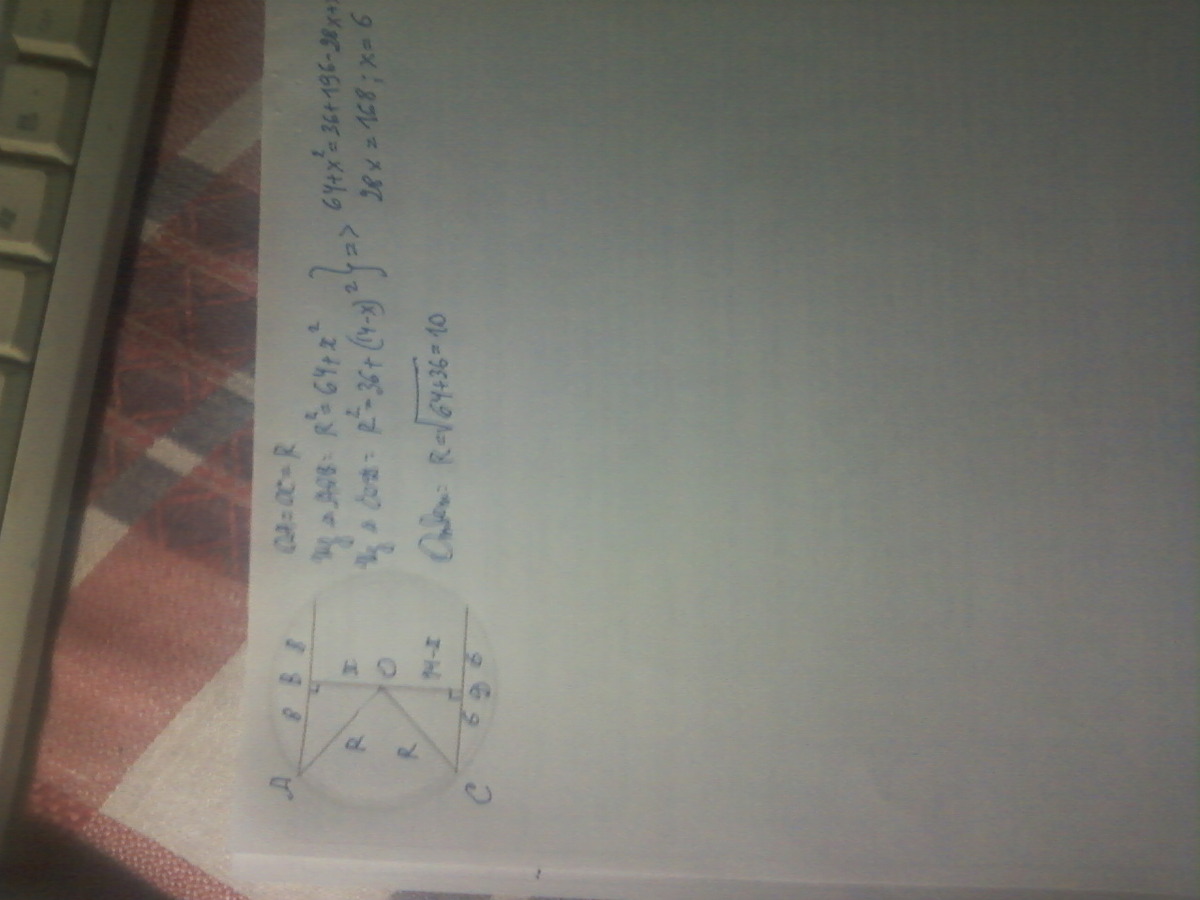 A 8 B 8
R x
O
R 14-x
C 6 D 6
OA=OC=R
Из △ AOB: R²=64+x²
Из △ COD: R²=36+(14-x)² } => 64+x²=36+196-28x+x
28x=168; x=6
Ответ: R=√64+36=10